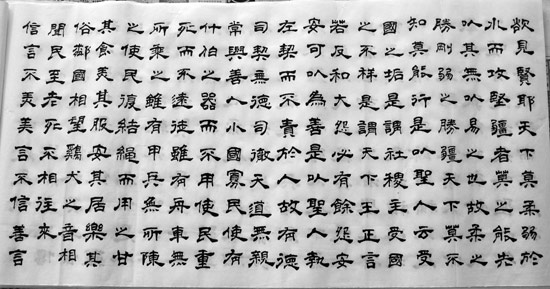 欲見賢耶天下莫柔弱於
水而攻堅彊者莫之能先
㠯其無㠯易之也故柔之
勝剛弱之勝彊天下莫不
知莫能行是㠯聖人云受
國之垢是謂社稷主受國
之不祥是謂天下王正言
若反和大怨必有餘怨安
安可㠯為善是㠯聖人執
左契而不責於人故有德
司契無德司徹天道無親
常與善人小國寡民使有
什伯之器而不用使民重
死而不遠徙雖有舟車無
所乘之雖有甲兵無所陳
之使民復結繩而用之甘
其食美其服安其居樂其
俗鄰國相望雞犬之音相
聞民至老死不相往來
信言不美美言不信善言